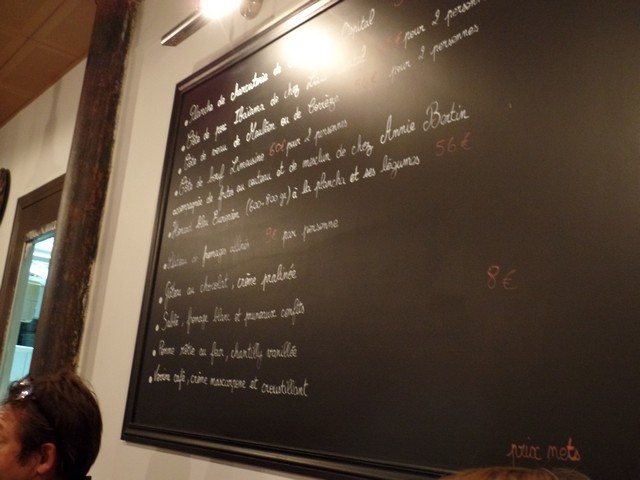 • Planche de charcuterie de Oteiza
• Côte de porc Ibaïama de chez Louis pour 2 personnes
• Côte de veau de Mauléon ou de Corrèze pour 2 personnes
• Côte de bœuf Limousine 60€ pour 2 personnes
accompagnée de frites au couteau et de mesclun de chez Annie Bertin
• Homard bleu Européen (600-900 gr) à la plancha et ses légumes 56€
• fromages affinés 9€ par personne
• Gâteau au chocolat, crème pralinée
• Sablé, fromage blanc et pruneaux confits 8€
• Pomme rôtie au four, chantilly vanillée
• Verrine café, crème mascarpone et croustillant
prix nets